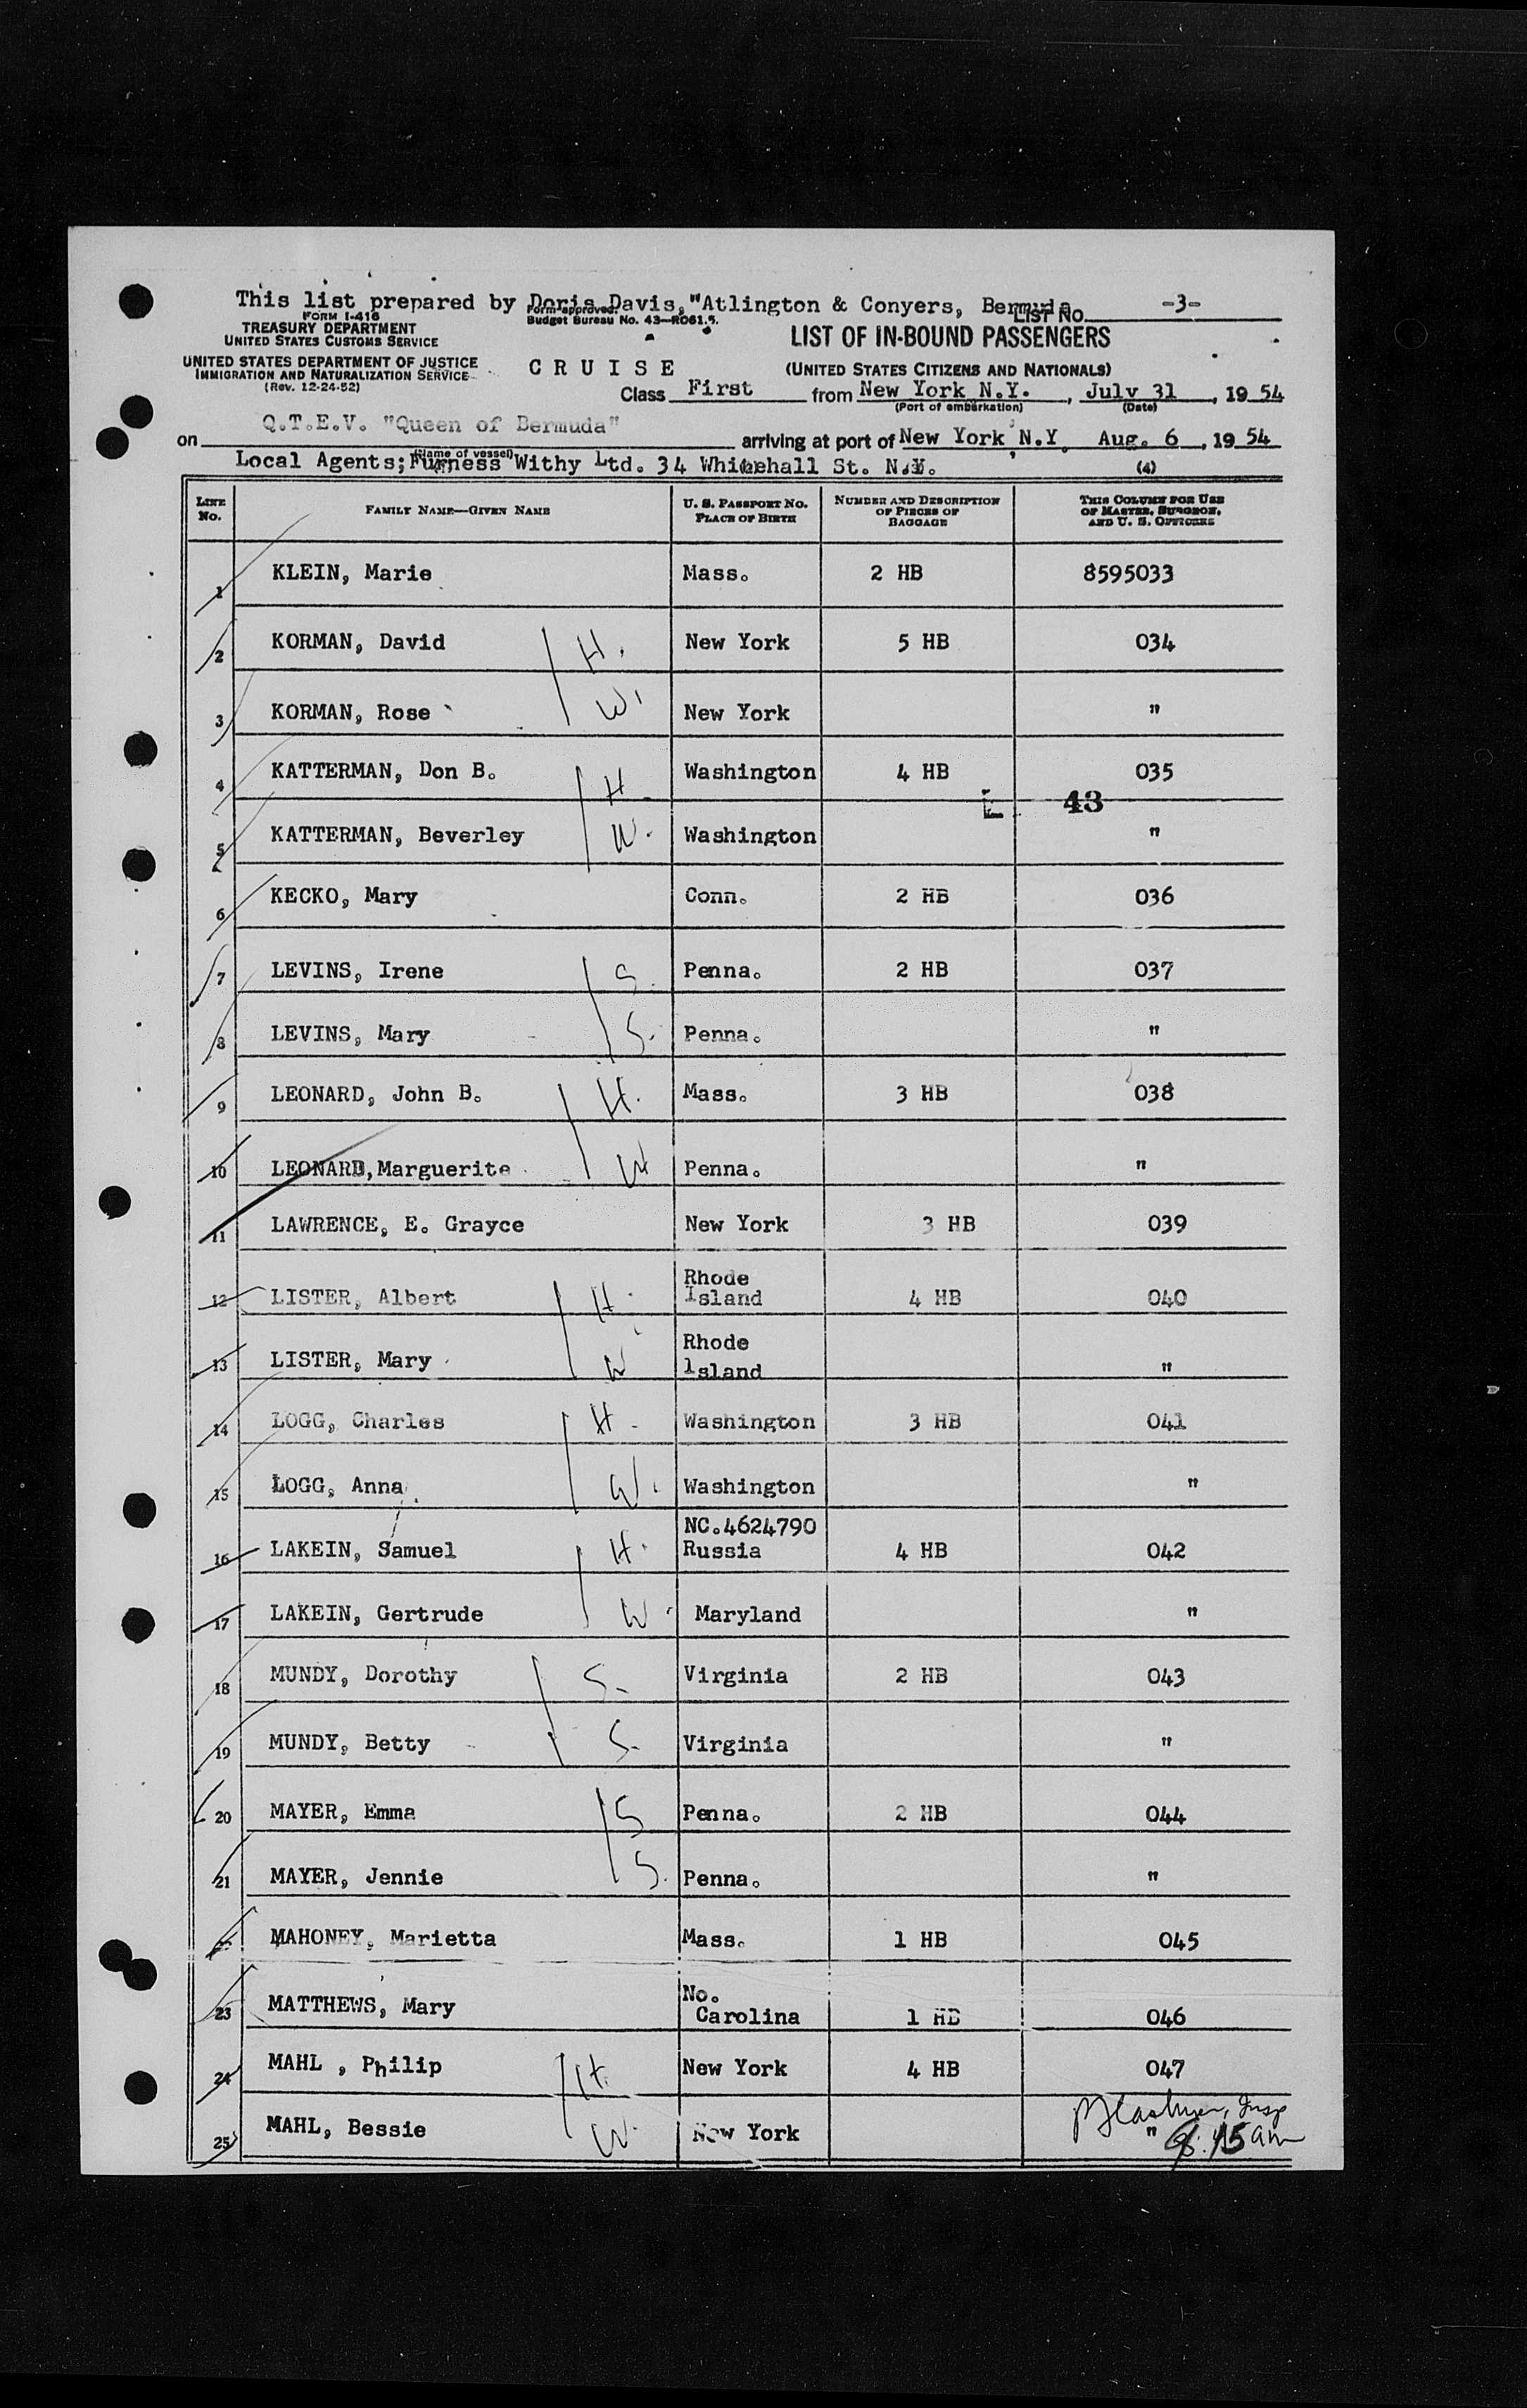 This list prepared by Doris Davis, "Atlington & Conyers, Bermuda
LIST No. -3-
FORM I-416
TREASURY DEPARTMENT
UNITED STATES CUSTOMS SERVICE
Form approved.
Budget Bureau No. 43—R061.5.
LIST OF IN-BOUND PASSENGERS
UNITED STATES DEPARTMENT OF JUSTICE
IMMIGRATION AND NATURALIZATION SERVICE
(Rev. 12-24-52)
C R U I S E
(UNITED STATES CITIZENS AND NATIONALS)
Class First from New York N.Y. , July 31 , 19 54
(Port of embarkation) (Date)
on Q.T.E.V. "Queen of Bermuda" arriving at port of New York N.Y. Aug. 6 , 19 54
(Name of vessel)
Local Agents; Furness Withy Ltd. 34 Whitehall St. N.Y. (4)
LINE No. FAMILY NAME—GIVEN NAME U. S. PASSPORT NO. PLACE OF BIRTH NUMBER AND DESCRIPTION OF PIECES OF BAGGAGE THIS COLUMN FOR USE OF MASTER, SURGEON, AND U. S. OFFICERS
1 KLEIN, Marie Mass. 2 HB 8595033
2 KORMAN, David H. New York 5 HB 034
3 KORMAN, Rose W. New York "
4 KATTERMAN, Don B. H. Washington 4 HB 035
L 43
5 KATTERMAN, Beverley W. Washington "
6 KECKO, Mary Conn. 2 HB 036
7 LEVINS, Irene S. Penna. 2 HB 037
8 LEVINS, Mary S. Penna. "
9 LEONARD, John B. H. Mass. 3 HB 038
10 LEONARD, Marguerite W Penna. "
11 LAWRENCE, E. Grayce New York 3 HB 039
12 LISTER, Albert H. Rhode Island 4 HB 040
13 LISTER, Mary W Rhode Island "
14 LOGG, Charles H. Washington 3 HB 041
15 LOGG, Anna W. Washington "
NC.4624790
16 LAKEIN, Samuel H. Russia 4 HB 042
17 LAKEIN, Gertrude W. Maryland "
18 MUNDY, Dorothy S. Virginia 2 HB 043
19 MUNDY, Betty S. Virginia "
20 MAYER, Emma S Penna. 2 HB 044
21 MAYER, Jennie S. Penna. "
MAHONEY, Marietta Mass. 1 HB 045
23 MATTHEWS, Mary No. Carolina 1 HB 046
24 MAHL , Philip H. New York 4 HB 047
25 MAHL, Bessie W. New York "
Insp
8:45 am